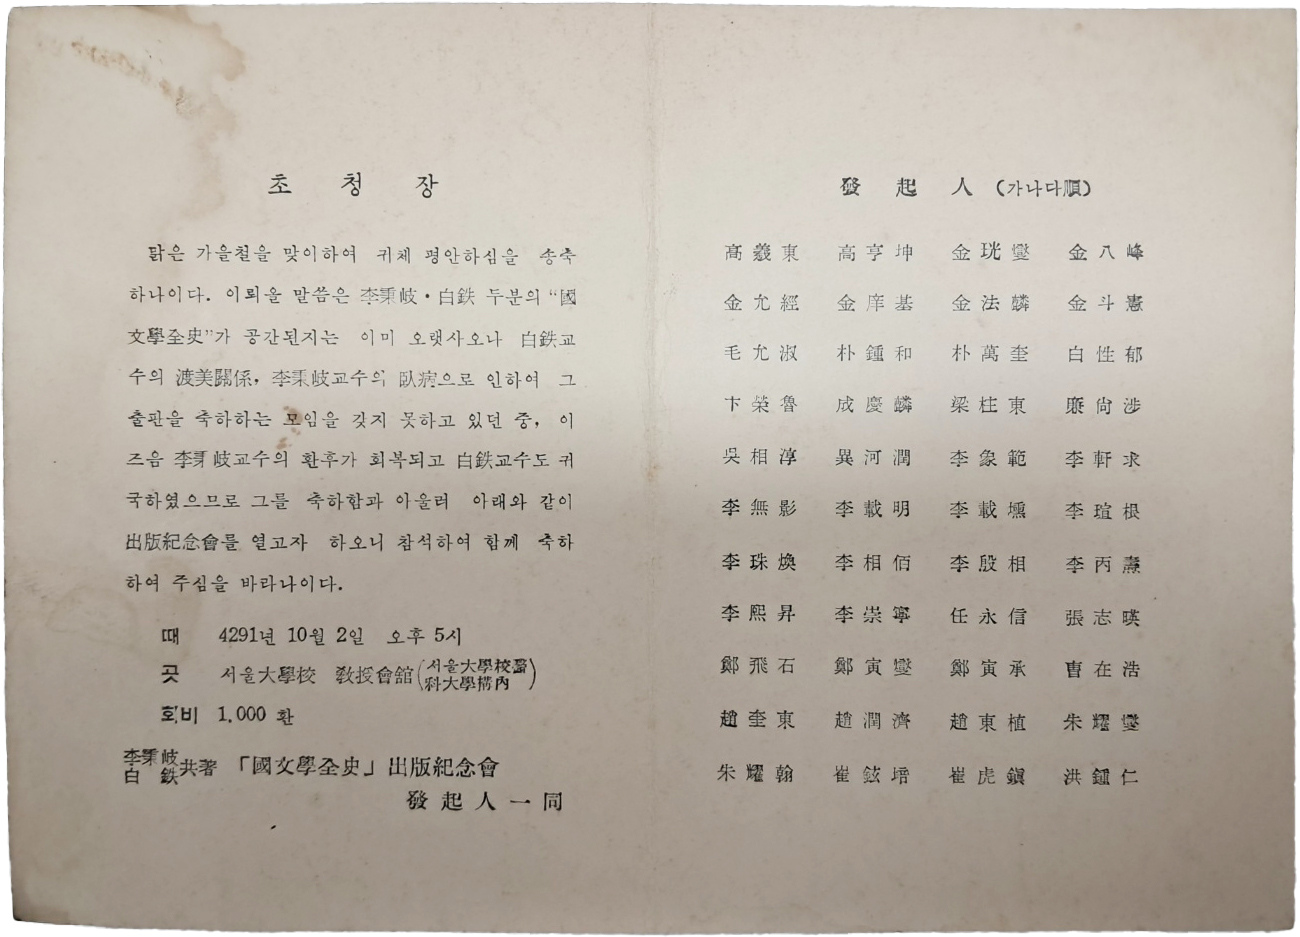 초 청 장
맑은 가을철을 맞이하여 귀체 평안하심을 송축
하나이다. 이뢰올 말씀은 李秉岐·白鉄 두분의 “國
文學全史”가 공간된지는 이미 오랫사오나 白鉄교
수의 渡美關係, 李秉岐교수의 臥病으로 인하여 그
출판을 축하하는 모임을 갖지 못하고 있던 중, 이
즈음 李秉岐교수의 환후가 회복되고 白鉄교수도 귀
국하였으므로 그를 축하함과 아울러 아래와 같이
出版紀念會를 열고자 하오니 참석하여 함께 축하
하여 주심을 바라나이다.
때 4291년 10월 2일 오후 5시
곳 서울大學校 敎授會舘(서울大學校醫科大學構內)
회비 1.000 환
李秉岐 白鉄 共著 「國文學全史」 出版紀念會
發起人一同
發起人 (가나다順)
高羲東 高亨坤 金珖燮 金八峰
金允經 金庠基 金法麟 金斗憲
毛允淑 朴鍾和 朴萬奎 白性郁
卞榮魯 成慶麟 梁柱東 廉尙涉
吳相淳 異河潤 李象範 李軒求
李無影 李載明 李載壎 李瑄根
李珠煥 李相佰 李殷相 李丙燾
李熙昇 李崇寧 任永信 張志暎
鄭飛石 鄭寅燮 鄭寅承 曺在浩
趙奎東 趙潤濟 趙東植 朱耀燮
朱耀翰 崔鉉培 崔虎鎭 洪鍾仁